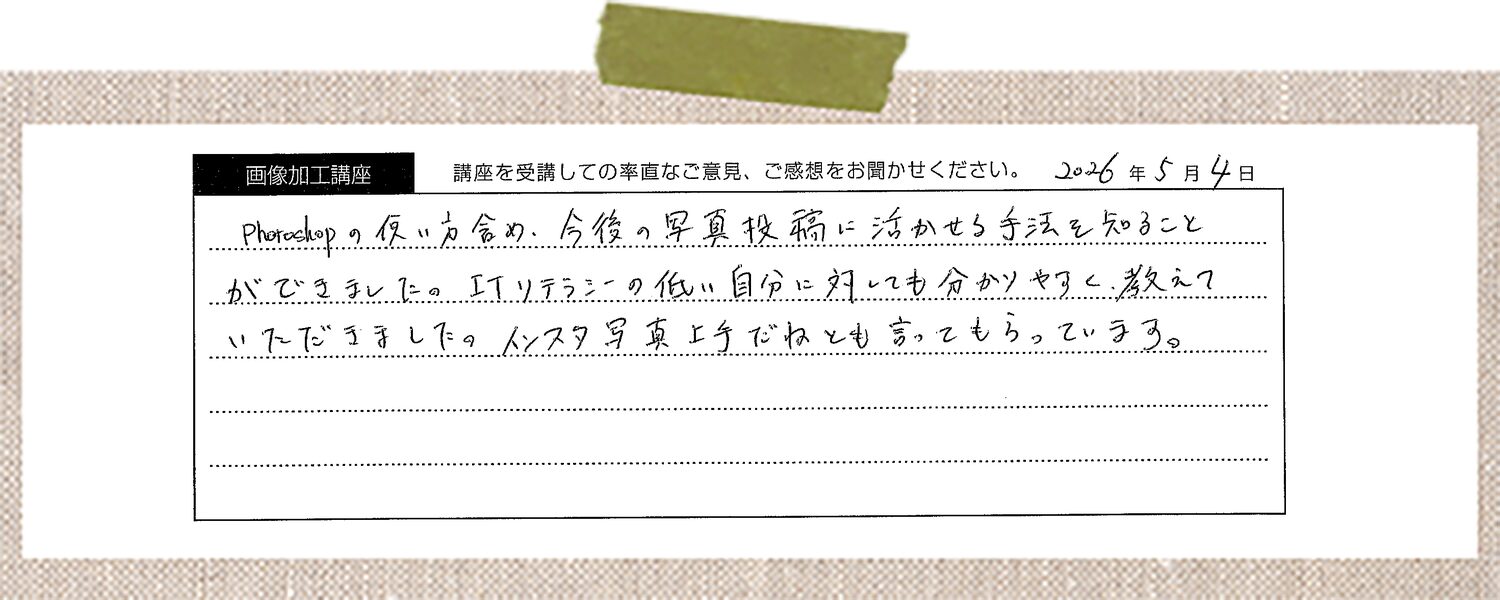 画像加工講座 講座を受講しての率直なご意見、ご感想をお聞かせください。 2026年5月4日
Photoshopの使い方含め、今後の写真投稿に活かせる手法を知ること
ができました。ITリテラシーの低い自分に対しても分かりやすく、教えて
いただきました。インスタ写真上手だねとも言ってもらっています。